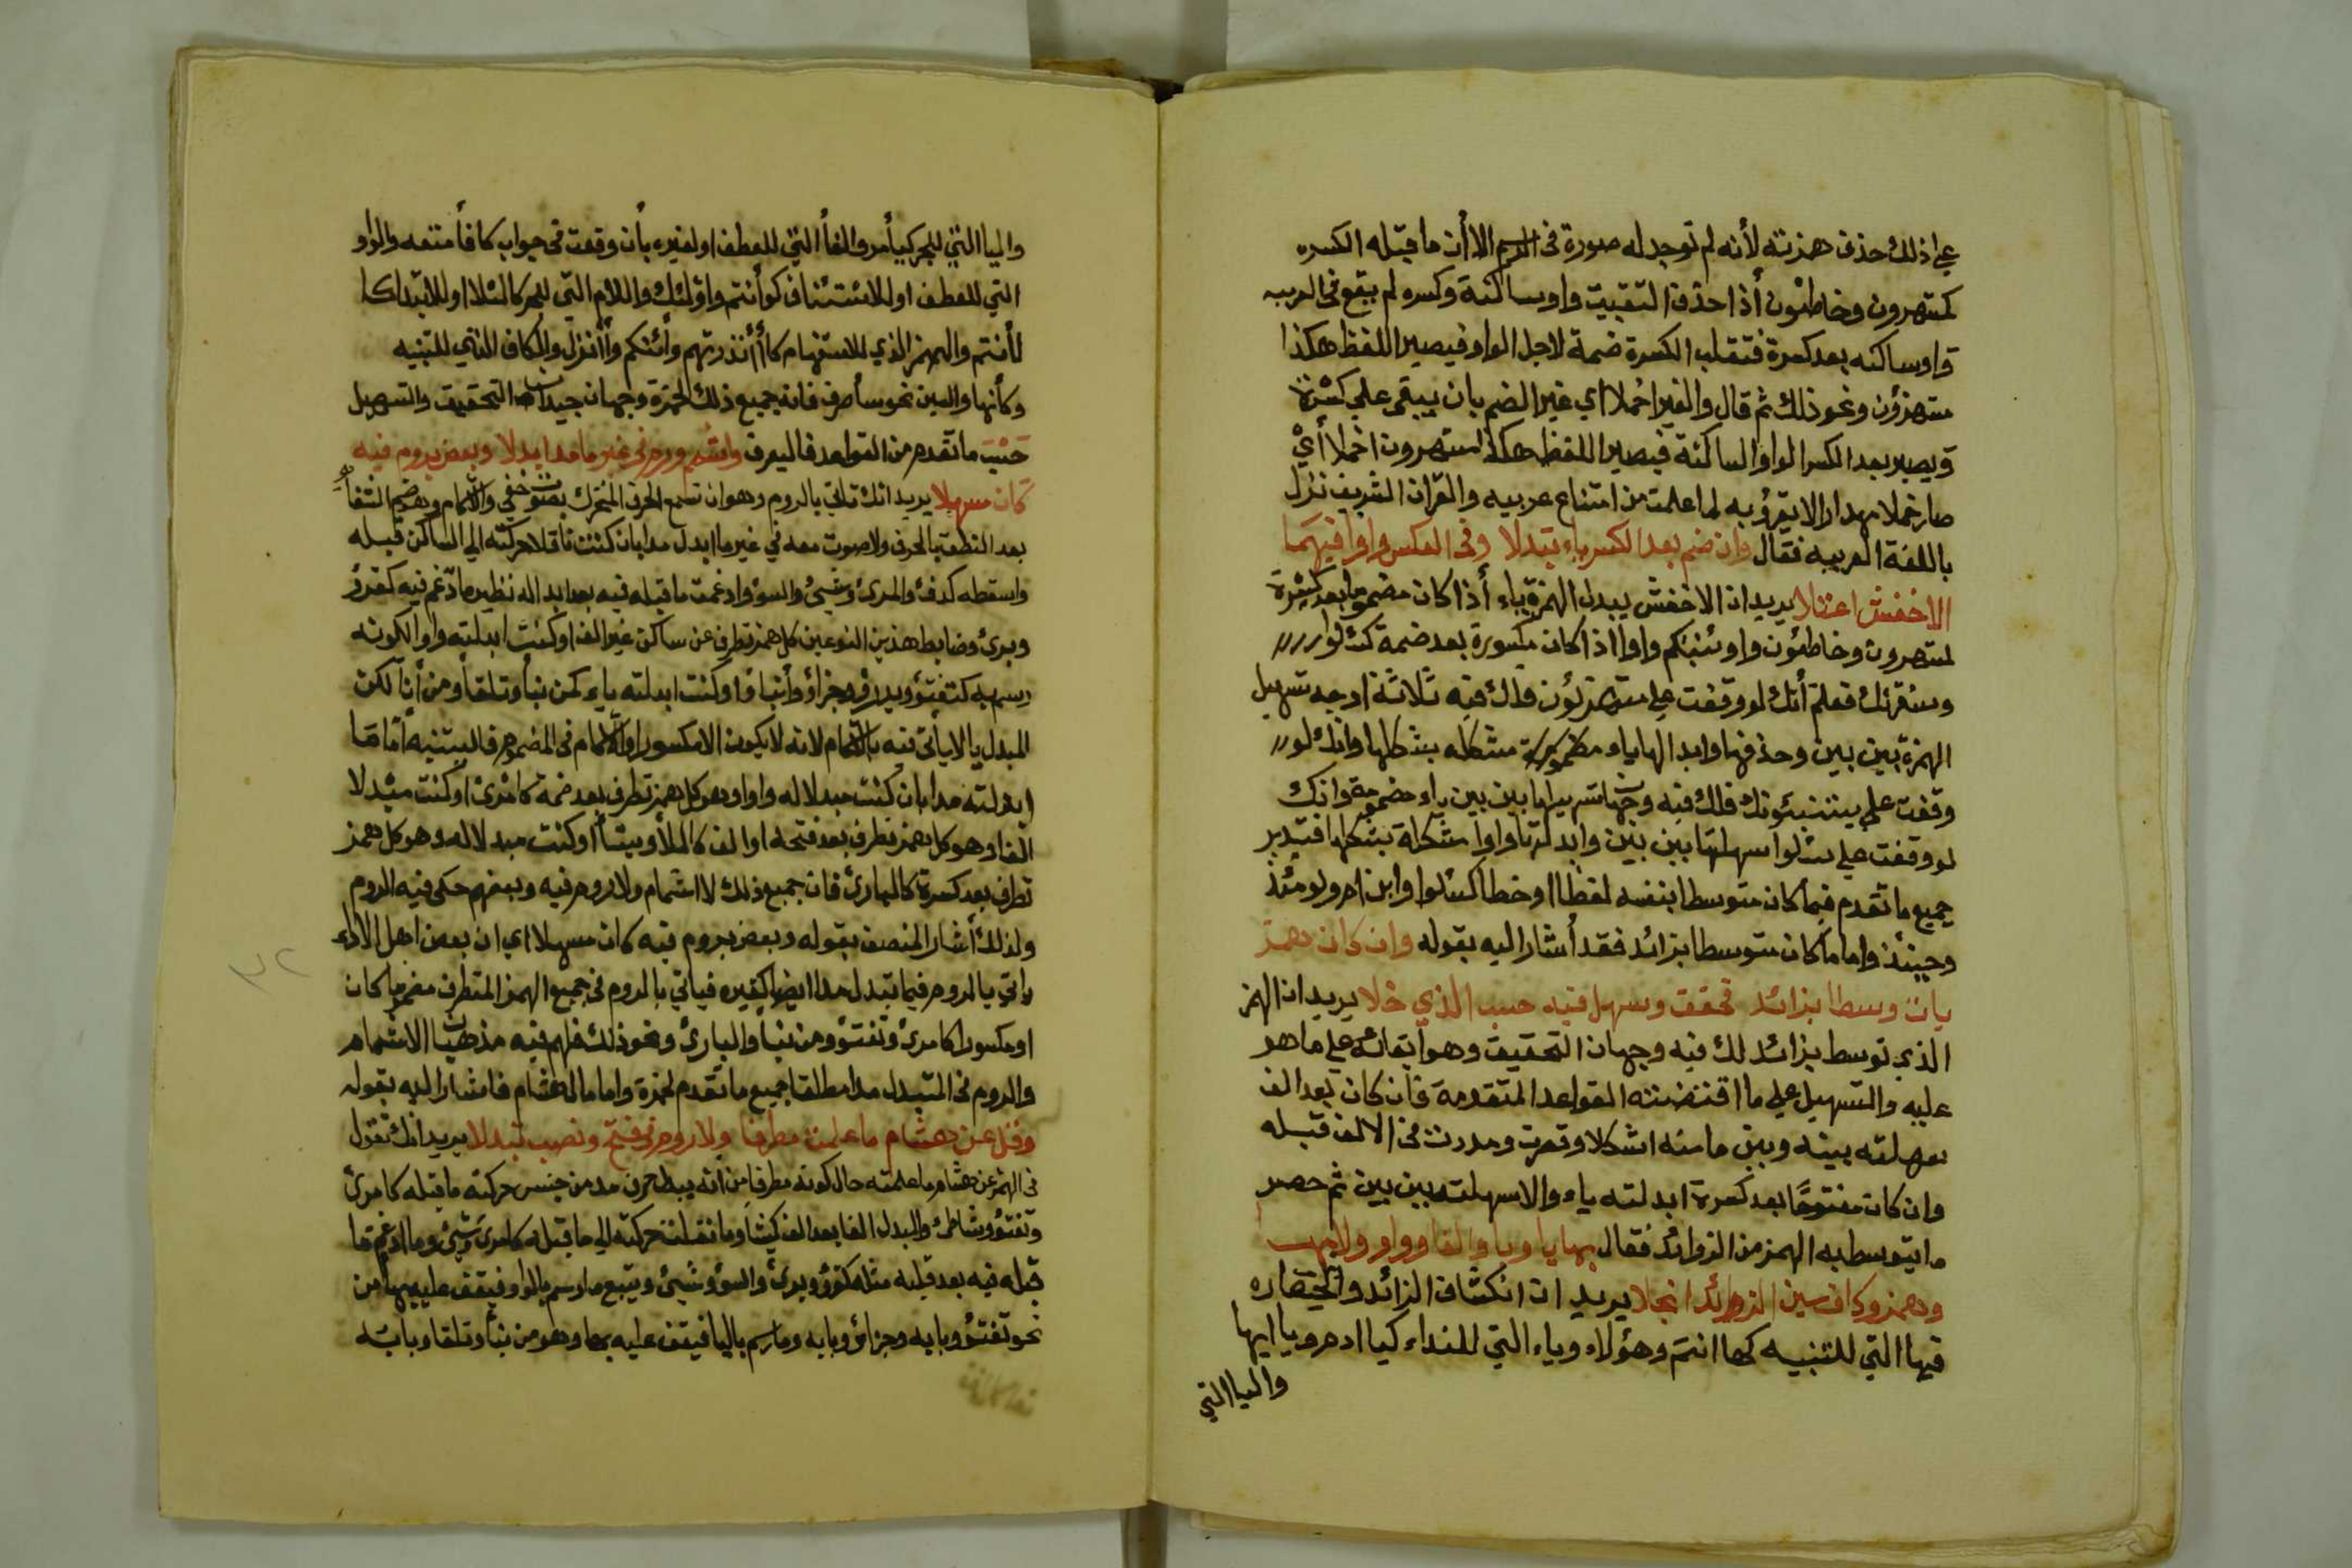 على ذلك حذف همزته لأنه لم توجد له صورة فى الرسم الا أن ما قبله الكسره
كمستهزون وخاطئون أذا حذفت التقيت واو ساكنة وكسره لم يقع فى العربيه
واو ساكنه بعد كسرة فتقلب الكسرة ضمة لاجل الواو فيصير اللفظ هكذا
مستهزؤن ونحو ذلك ثم قال والغير اخملا اي غير الضم بان يبقى على كسرة
ويصير بعد الكسر الواو الساكنة فيصير اللفظ هكذا مستهرون اخملا أيْ
صار خملا مهدارا لا يقرؤ به لما علمت من امتناع عربيه والقران الشريف نزل
باللغة العربيه فقال وان ضم بعد الكسر ياء تبدلا وفى العكس واوا فيهما
الاخفش اعتلا يريد ان الاخفش يبدل الهمزة ياء أذا كان مضموما بعد كسرة
كمستهرون وخاطئون واوننبئكم واوا اذا كان مكسورة بعد ضمة كسئلوا
وسنقرئك فعلم أنك لو وقفت على مستهزئون فلك فيه ثلاثة اوجه تسهيل
الهمزة بين بين وحذفها وابدالها ياء مضمومة مشكله بشكلها وانك لو
وقفت على يستنبئونك فلك فيه وجهان تسهيلها بين بين ياء مضمومة وانك
لو وقفت على سئلوا سهلتها بين بين وابدلتها واوا مشكلة بشكلها فتدبر
جميع ما تقدم فيما كان متوسطا بنفسه لفظا او خطا كسئلوا وابن ام ويومئذ
وحينئذ واما ما كان متوسطا بزائد فقد أشار اليه بقوله وان كان همز
بات وسطا بزائد تحقق وسهل فيه حسب الذي خلا يريد ان الهمز
الذي توسط بزائد لك فيه وجهان التحقيق وهو ابقائه على ما هو
عليه والتسهيل على ما اقتضته القواعد المتقدمة فان كان بعد الف
سهلته بينه وبين ما منه اشكلا وقصرت ومددت فى الالف قبله
وان كان مفتوحًا بعد كسرة ابدلته ياء والا سهلته بين بين ثم حصر
ما يتوسط به الهمز من الزوائد فقال بها يا وبا والفا وواو ولامهب
وهمز وكاف سين الزوائد انجلا يريد ان انكشاف الزائد وانحصاره
فيها التي للتنبيه كها انتم وهؤلاء وياء التي للنداء كيا ادم ويا ايها
واليا التي
واليا التي للجر كبأمر والفأ التي للعطف او لغيره بأن وقعت فى جواب كافأمتعه والواو
التي للعطف او للائستئناف كوأنتم واؤلئك واللام التي للجر كالئلا او للابتداكا
لأنتم والهمز الذي للاستفهام كاأنذرتهم وأئنكم وأأنزل والكاف التي للتبنيه
وكأنها والسين نحو سأصرف فانه جميع ذلك لحمزة وجهان جيدان التحقيق والتسهيل
حَسْبَ ما تقدم من القواعد فاليعرف واشمم ورم فى غير ما مدا ابدلا وبعض بروم فيه
كان مسهلا يريد انك تاتي بالروم وهو ان تسمع الحرف المتحرك بصوت خفي والاشمام وهو ضم الشفا
بعد النطق بالحرف ولا صوت معه في غير ما ابدل مدا بان كنت ناقلا حركته الي الساكن قبله
واسقطه كدفء والمرئ وشيئ والسؤ وادغمت ما قبله فيه بعد ابداله نظير ما ادغم فيه كقرؤ
وبرئ وضابط هذين النوعين كل همز تطرف عن ساكن غير الف او كنت ابدلته واوا لكونه
رسم به كتفتؤ ويدرؤ وجزاؤ وأنباؤا او كنت ابدلته ياء كمن نبأ وتلقأ ومن أنأ لكن
المبدل يا لا ياتى فيه بالاشمام لانه لا يكون الا مكسورا والاشمام فى المضموم فاليتنبه أمّا ما
ابدلته مدا بان كنت مبدلا له واوا وهو كل همز تطرف بعد ضمة كامرئ او كنت مبْدلا
الفا وهو كل همز تطرف بعد فتحه او الف كالملأ ويشأ او كنت مبدلا له وهو كل همز
تطرف بعد كسرة كالبارئ فان جميع ذلك لا اشمام ولا روم فيه وبعضهم حكى فيه الروم
ولذلك أشار المصنف بقوله وبعض بروم فيه كان مسهلا اي ان بعض اهل الاداء
ياتي بالروم فيما تبدل مدا ايضا كغيره فياتي بالروم فى جميع الهمز المتطرف مضموما كان
او مكسورا كامرئ وتفتؤ ومن نبأ والبارئ ونحو ذلك فلهم فيه مذهبان الاشمام
والروم فى المبدل مدا مطلقا جميع ما تقدم لحمزة واما ما لهشام فاشار اليه بقوله
وقل عن هشام ما علمت مطرفا ولا روم فى فتح ونصب تبدلا يريد انك تقول
فى الهمز عن هشام ما علمته حال كونه مطرفا من أنه يبدل حرف مد من جنس حركته ما قبله كامرئ
وتفتؤ وشاطئ والبدل الفا بعد الف كيشأ وما نقلت حركته الي ما قبله كامرئ وشيئ وما ادغم ما
قبله فيه بعد قلبه مثله كقرؤ وبرئ والسؤ وشيئ ويتبع ما رسم بالواو فيقف عليه بها من
نحو تفتؤ وبابه وجزاؤ وبابه وما رسم باليا فيقف عليه بها وهو من نبأ وتلقا وبابه